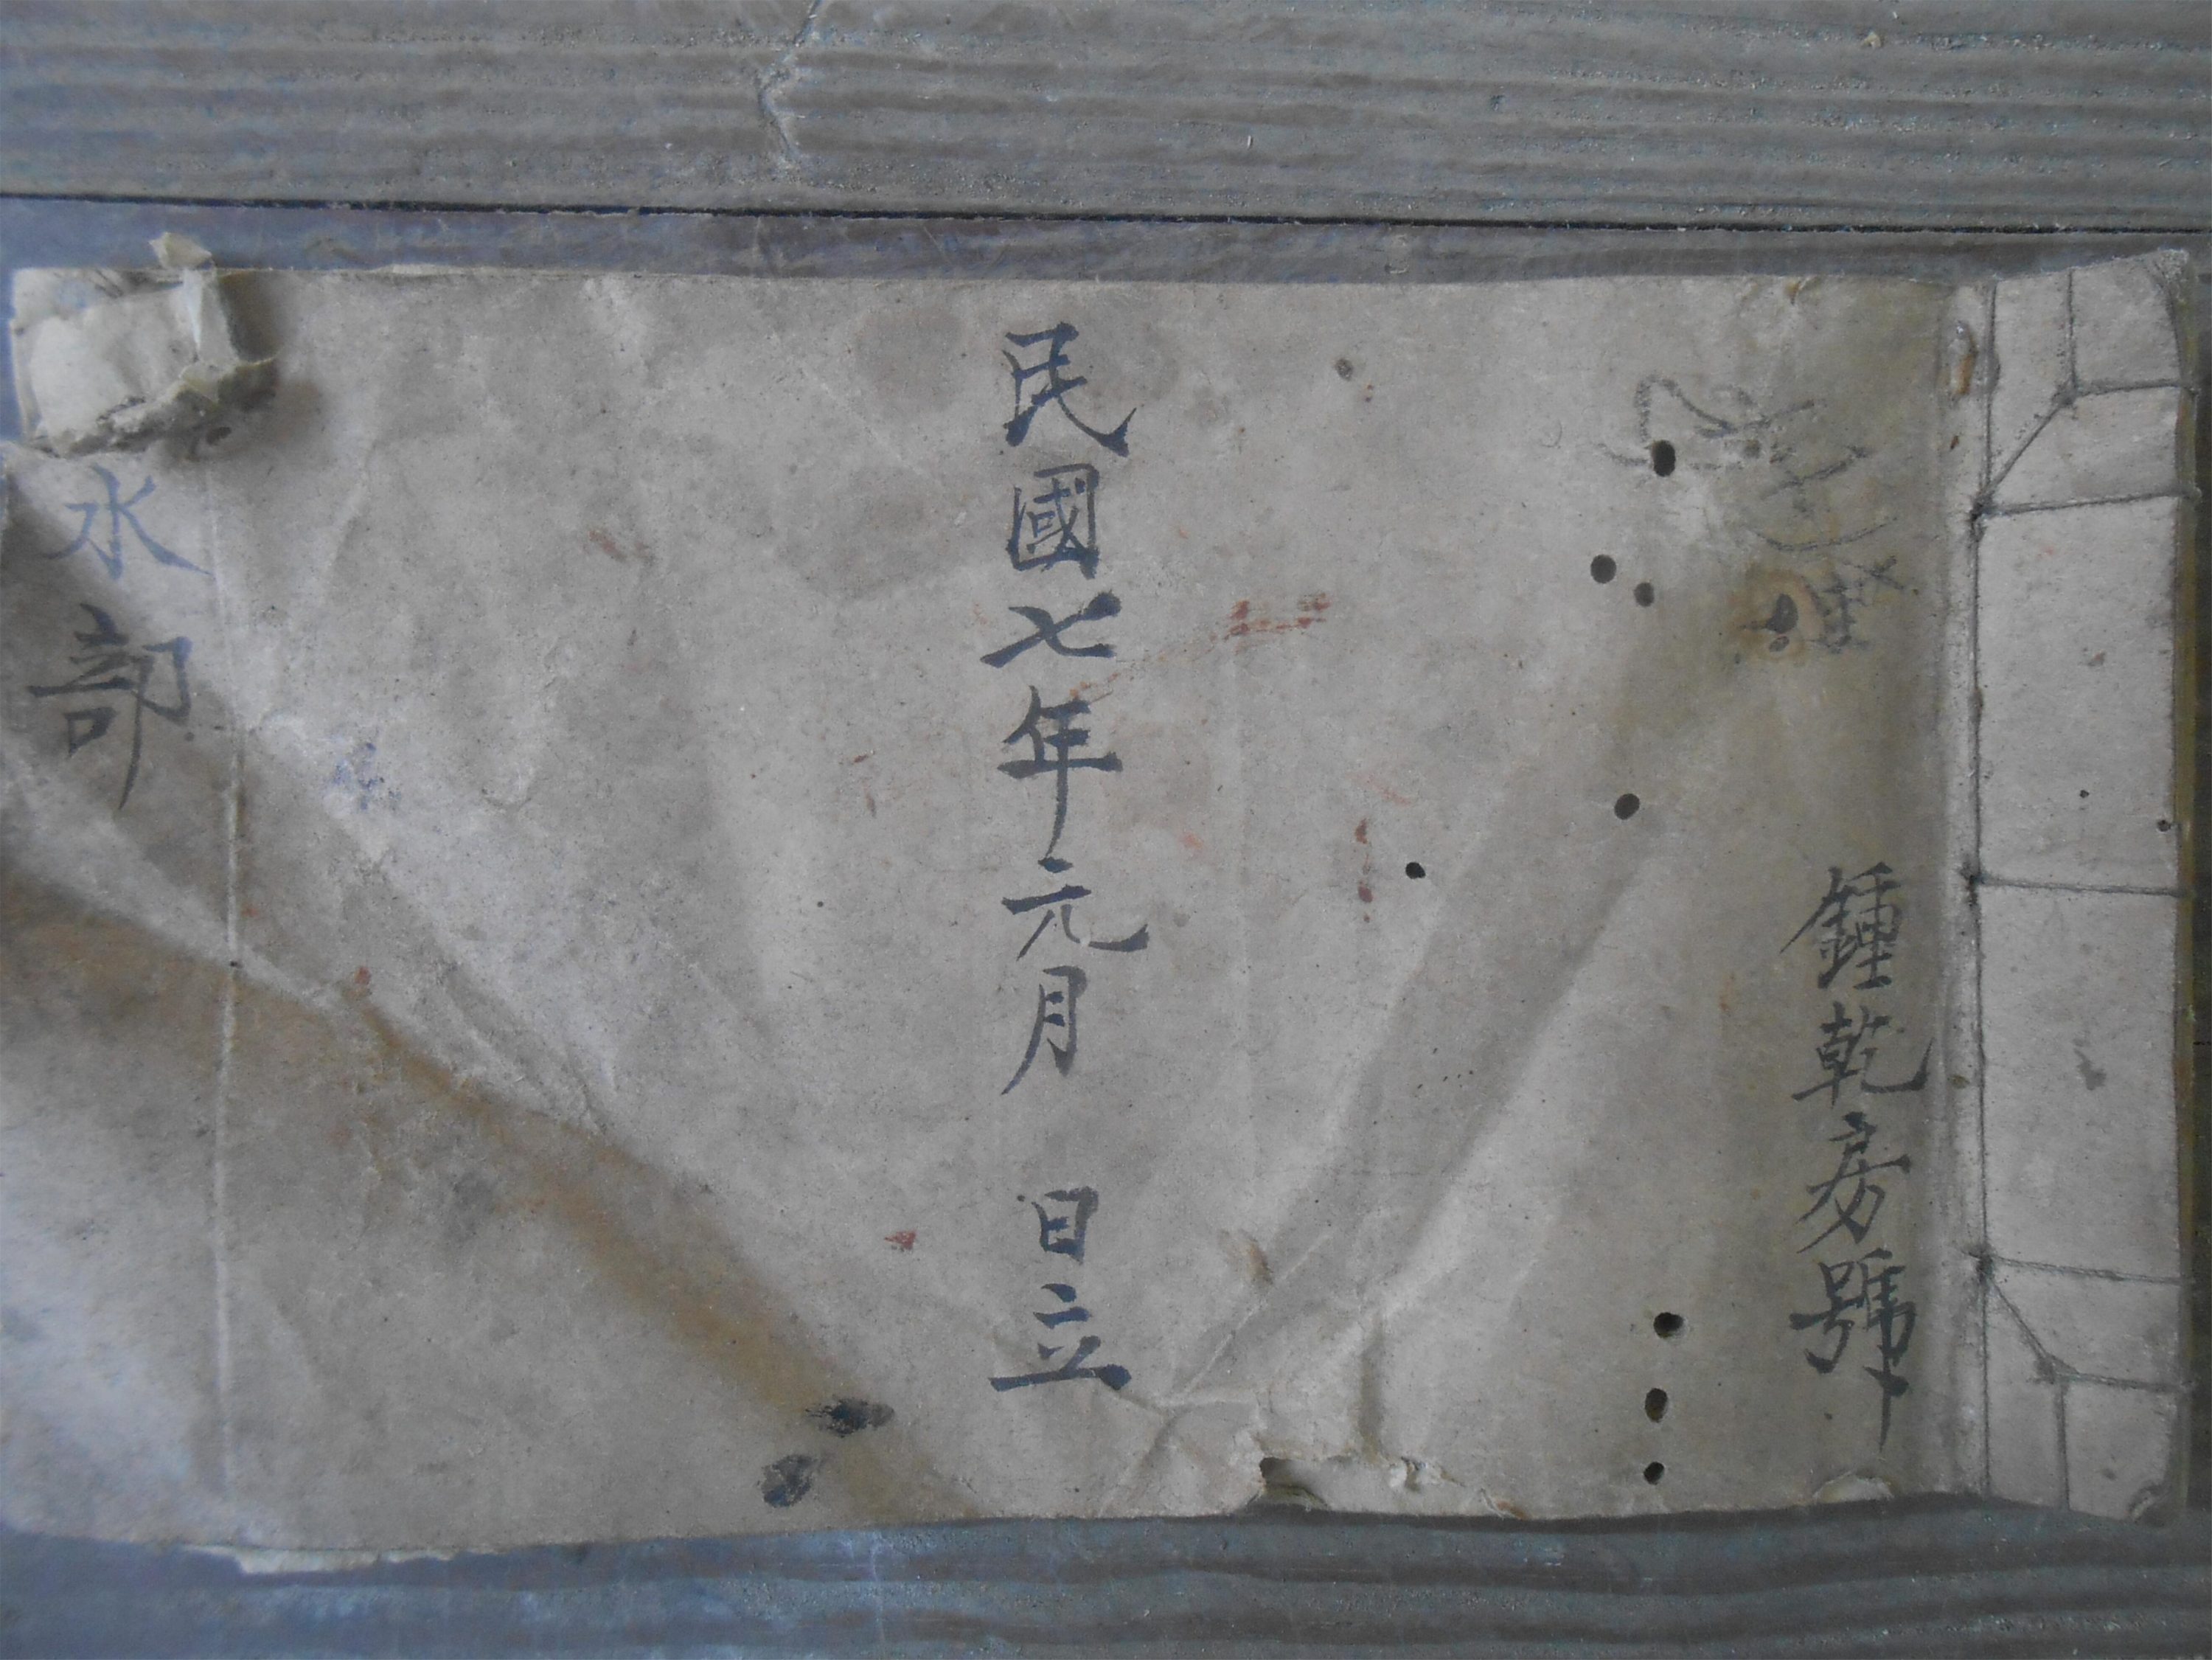 鍾乾房號
民國七年元月 日立
水部